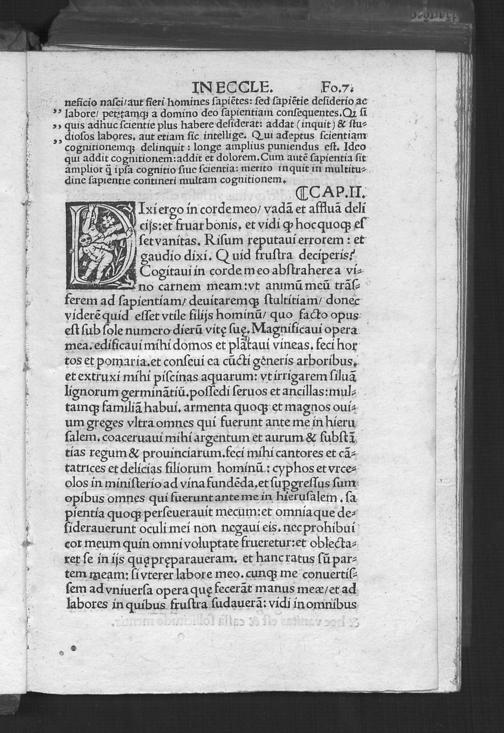 IN ECCLE. Fo.7.
neficio nasci/aut fieri homines sapiẽtes: sed sapiẽtie desiderio ac
labore/ petẽtamqʒ a domino deo sapientiam consequentes. Qʒ si
,, quis adhuc scientie plus habere desiderat: addat (inquit) & stu⸗
,, diosos labores, aut etiam sic intellige. Qui adeptus scientiam
,, cognitionemqʒ delinquit: longe amplius puniendus est. Ideo
qui addit cognitionem: addit et dolorem. Cum autẽ sapientia sit
amplior q̃ ipsa cognitio siue scientia: merito inquit in multitu⸗
dine sapientie contineri multam cognitionem.
⸿CAP.II.
DIxi ergo in corde meo/ vadã et affluã deli
cijs: et fruar bonis, et vidi ꝙ hoc quoqʒ es
set vanitas. Risum reputaui errorem: et
gaudio dixi. Quid frustra deciperis?
Cogitaui in corde meo abstrahere a vi⸗
no carnem meam: vt animũ meũ trãs⸗
ferem ad sapientiam/ deuitaremqʒ stultitiam/ donec
viderẽ quid esset vtile filijs hominũ/ quo facto opus
est sub sole numero dierũ vitę suę. Magnificaui opera
mea. edificaui mihi domos et plãtaui vineas. feci hor
tos et pomaria. et conseui ea cũcti generis arboribus.
et extruxi mihi piscinas aquarum: vt irrigarem siluã
lignorum germinãtiũ. possedi seruos et ancillas: mul⸗
tamqʒ familiã habui. armenta quoqʒ et magnos oui⸗
um greges vltra omnes qui fuerunt ante me in hieru
salem. coaceruaui mihi argentum et aurum & substã
tias regum & prouinciarum. feci mihi cantores et cã⸗
tatrices et delicias filiorum hominũ: cyphos et vrce⸗
olos in ministerio ad vina fundẽda. et supgressus sum
opibus omnes qui fuerunt ante me in hierusalem. sa
pientia quoqʒ perseuerauit mecum: et omnia que de⸗
siderauerunt oculi mei non negaui eis. nec prohibui
cor meum quin omni voluptate frueretur: et oblecta⸗
ret se in ijs quę preparaueram. et hanc ratus sũ par⸗
tem meam: si vterer labore meo. cunqʒ me conuertis⸗
sem ad vniuersa opera quę fecerãt manus meæ/ et ad
labores in quibus frustra sudauerã: vidi in omnibus